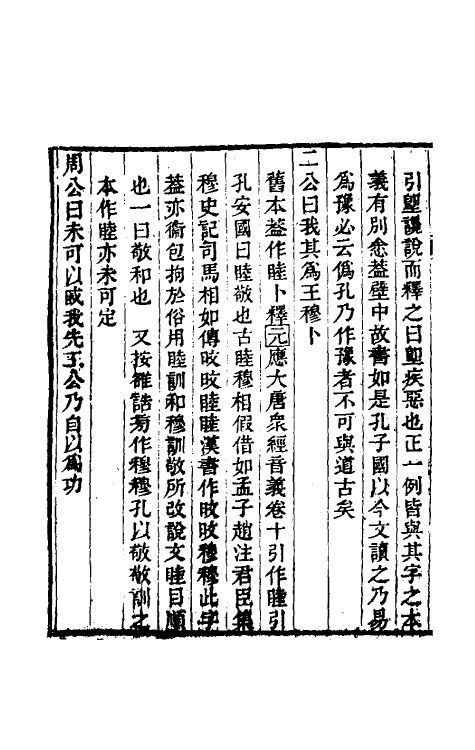 引堲讒說而釋之曰堲疾惡也正一例皆與其字之本
義有別悆葢壁中故書如是孔子國以今文讀之乃易
爲豫必云僞孔乃作豫者不可與道古矣
二公曰我其爲王穆卜
舊本葢作睦卜釋元應大唐衆經音義卷十引作睦引
孔安國曰睦敬也古睦穆相假借如孟子趙注君臣集
穆史記司馬相如傳旼旼睦睦漢書作旼旼穆穆此字
葢亦衞包拘於俗用睦訓和穆訓敬所改說文睦目順
也一曰敬和也 又按雒誥菊作穆穆孔以敬敬訓之
本作睦亦未可定
周公曰未可以戚我先王公乃自以爲功